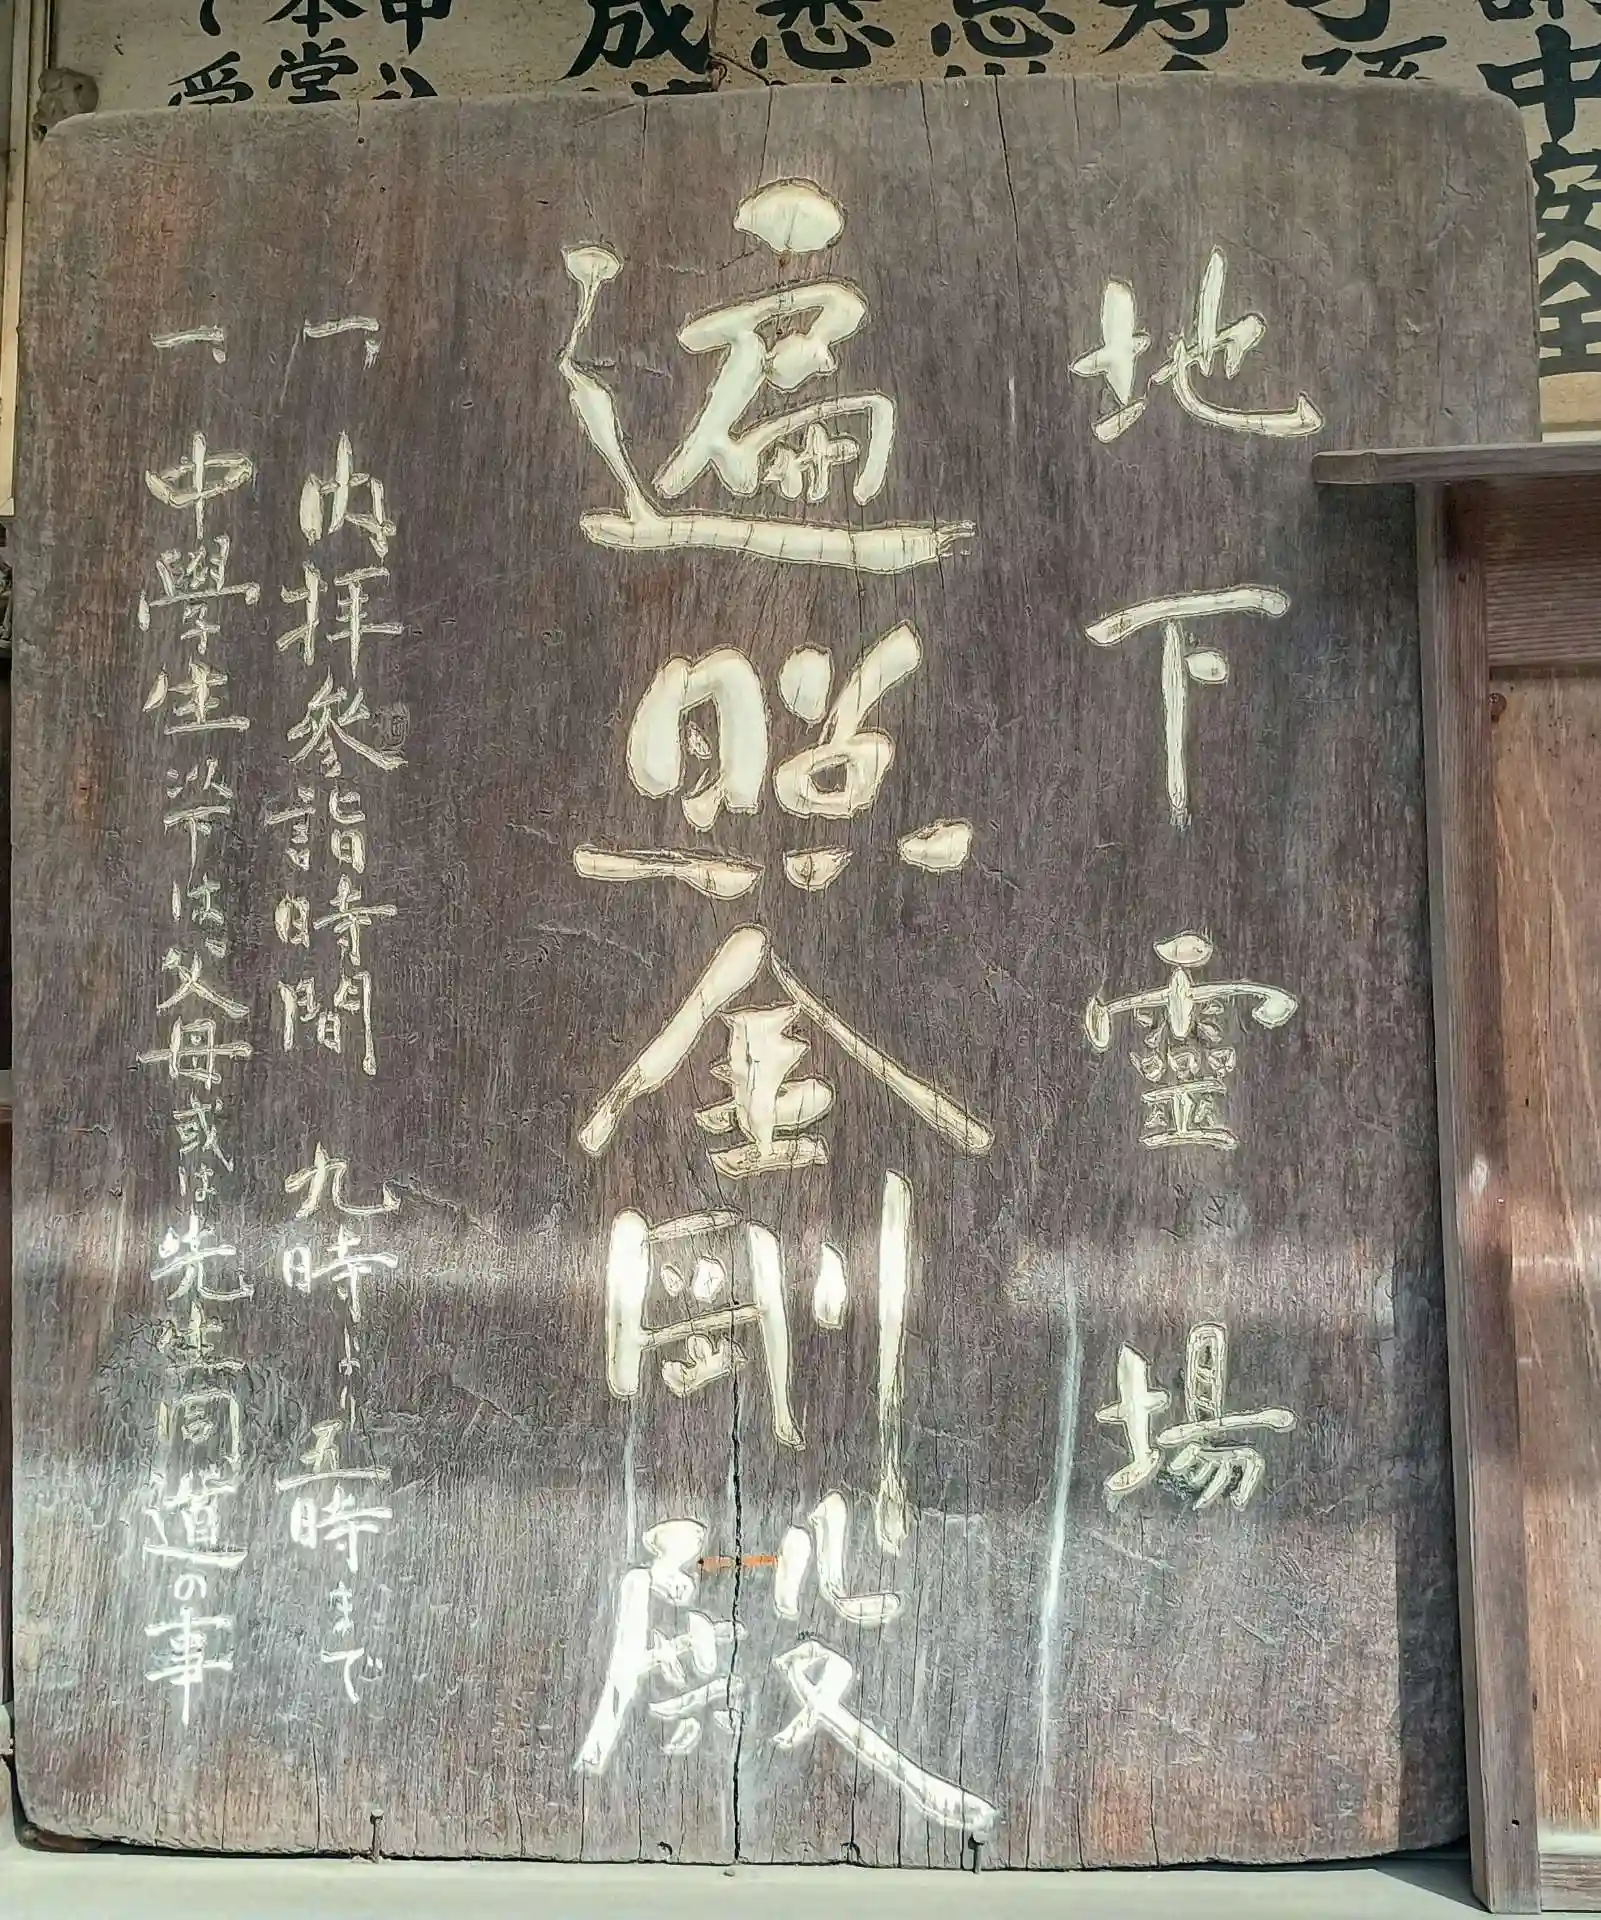 地下靈場
遍照金剛殿
一、内拝參詣時間 九時より五時まで
一、中學生以下は父母或は先生同道の事